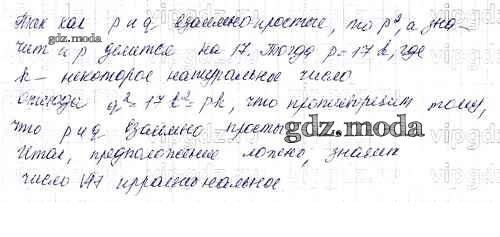 Так как p и q взаимно простые, то p², а зна-
чит и p делится на 17. Тогда p = 17k, где
k – некоторое натуральное число
откуда q² = 17k² = pk, что противоречит тому,
что p и q взаимно просты
gdz.moda
Итак, предположение ложно, значит
число √17 иррациональное.